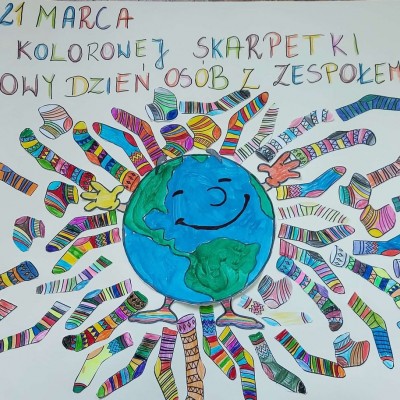 21 MARCA
KOLOROWEJ SKARPETKI
OWY DZIEŃ OSÓB Z ZESPOŁEM